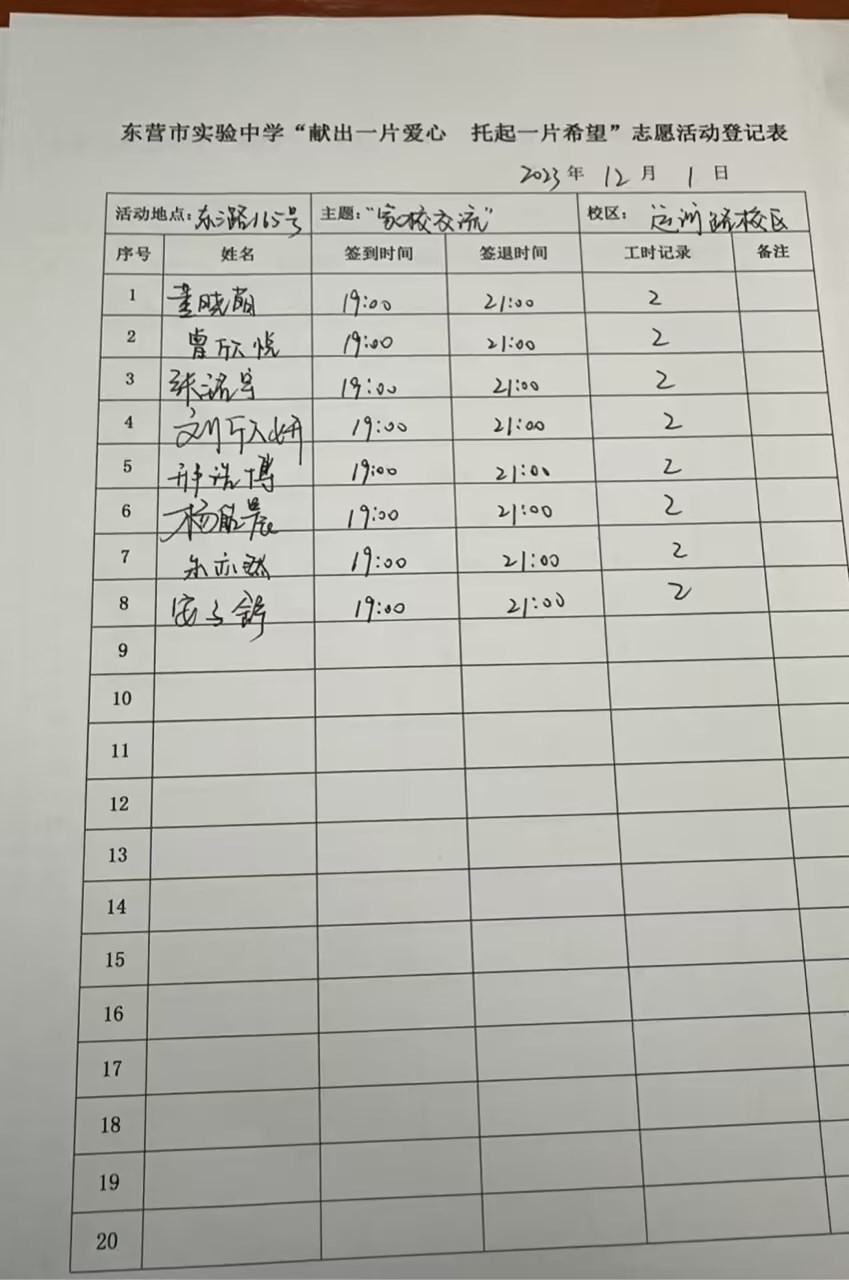 东营市实验中学“献出一片爱心 托起一片希望”志愿活动登记表
2023年 12月 1日
活动地点：东三路165号 主题：“家校交流” 校区：运河路校区
序号 姓名 签到时间 签退时间 工时记录 备注
1 董晓萌 19:00 21:00 2
2 曾欣悦 19:00 21:00 2
3 张 19:00 21:00 2
4 刘欣妍 19:00 21:00 2
5 浩博 19:00 21:00 2
6 杨 晨 19:00 21:00 2
7 朱亦 19:00 21:00 2
8 安子舒 19:00 21:00 2
9
10
11
12
13
14
15
16
17
18
19
20